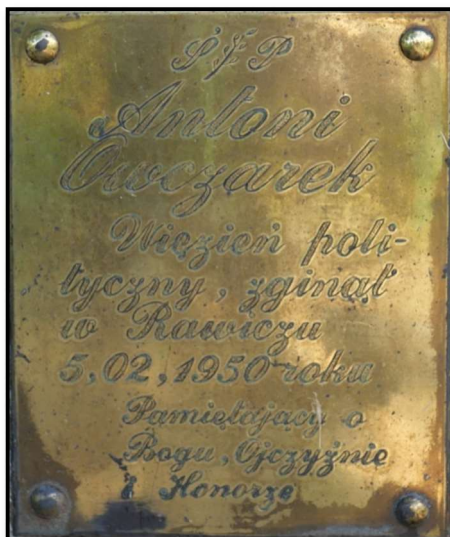 Ś P
Antoni
Owczarek
Więzień poli-
tyczny, zginął
w Rawiczu
5,02,1950 roku
Pamiętający o
Bogu, Ojczyźnie
i Honorze